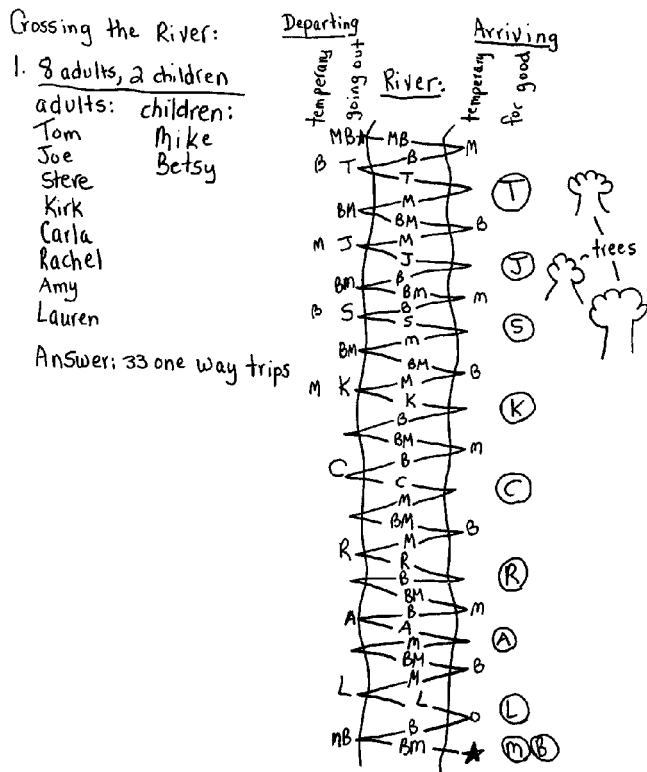 Crossing the River:
1. 8 adults, 2 children
adults: children:
Tom Mike
Joe Betsy
Steve
Kirk
Carla
Rachel
Amy
Lauren
Answer: 33 one way trips
Departing
temperary
going out
River:
Arriving
temperary
for good
MB MB M
B
B T T
T
M
BM BM B
M
M J J
J
B
BM BM m
B
B S S
S
m
BM BM B
M
M K K
K
B
BM m
B
C C
C
M
BM B
M
R R
R
B
BM m
B
A A
A
m
BM B
M
L L
L
B
mB BM m B
trees